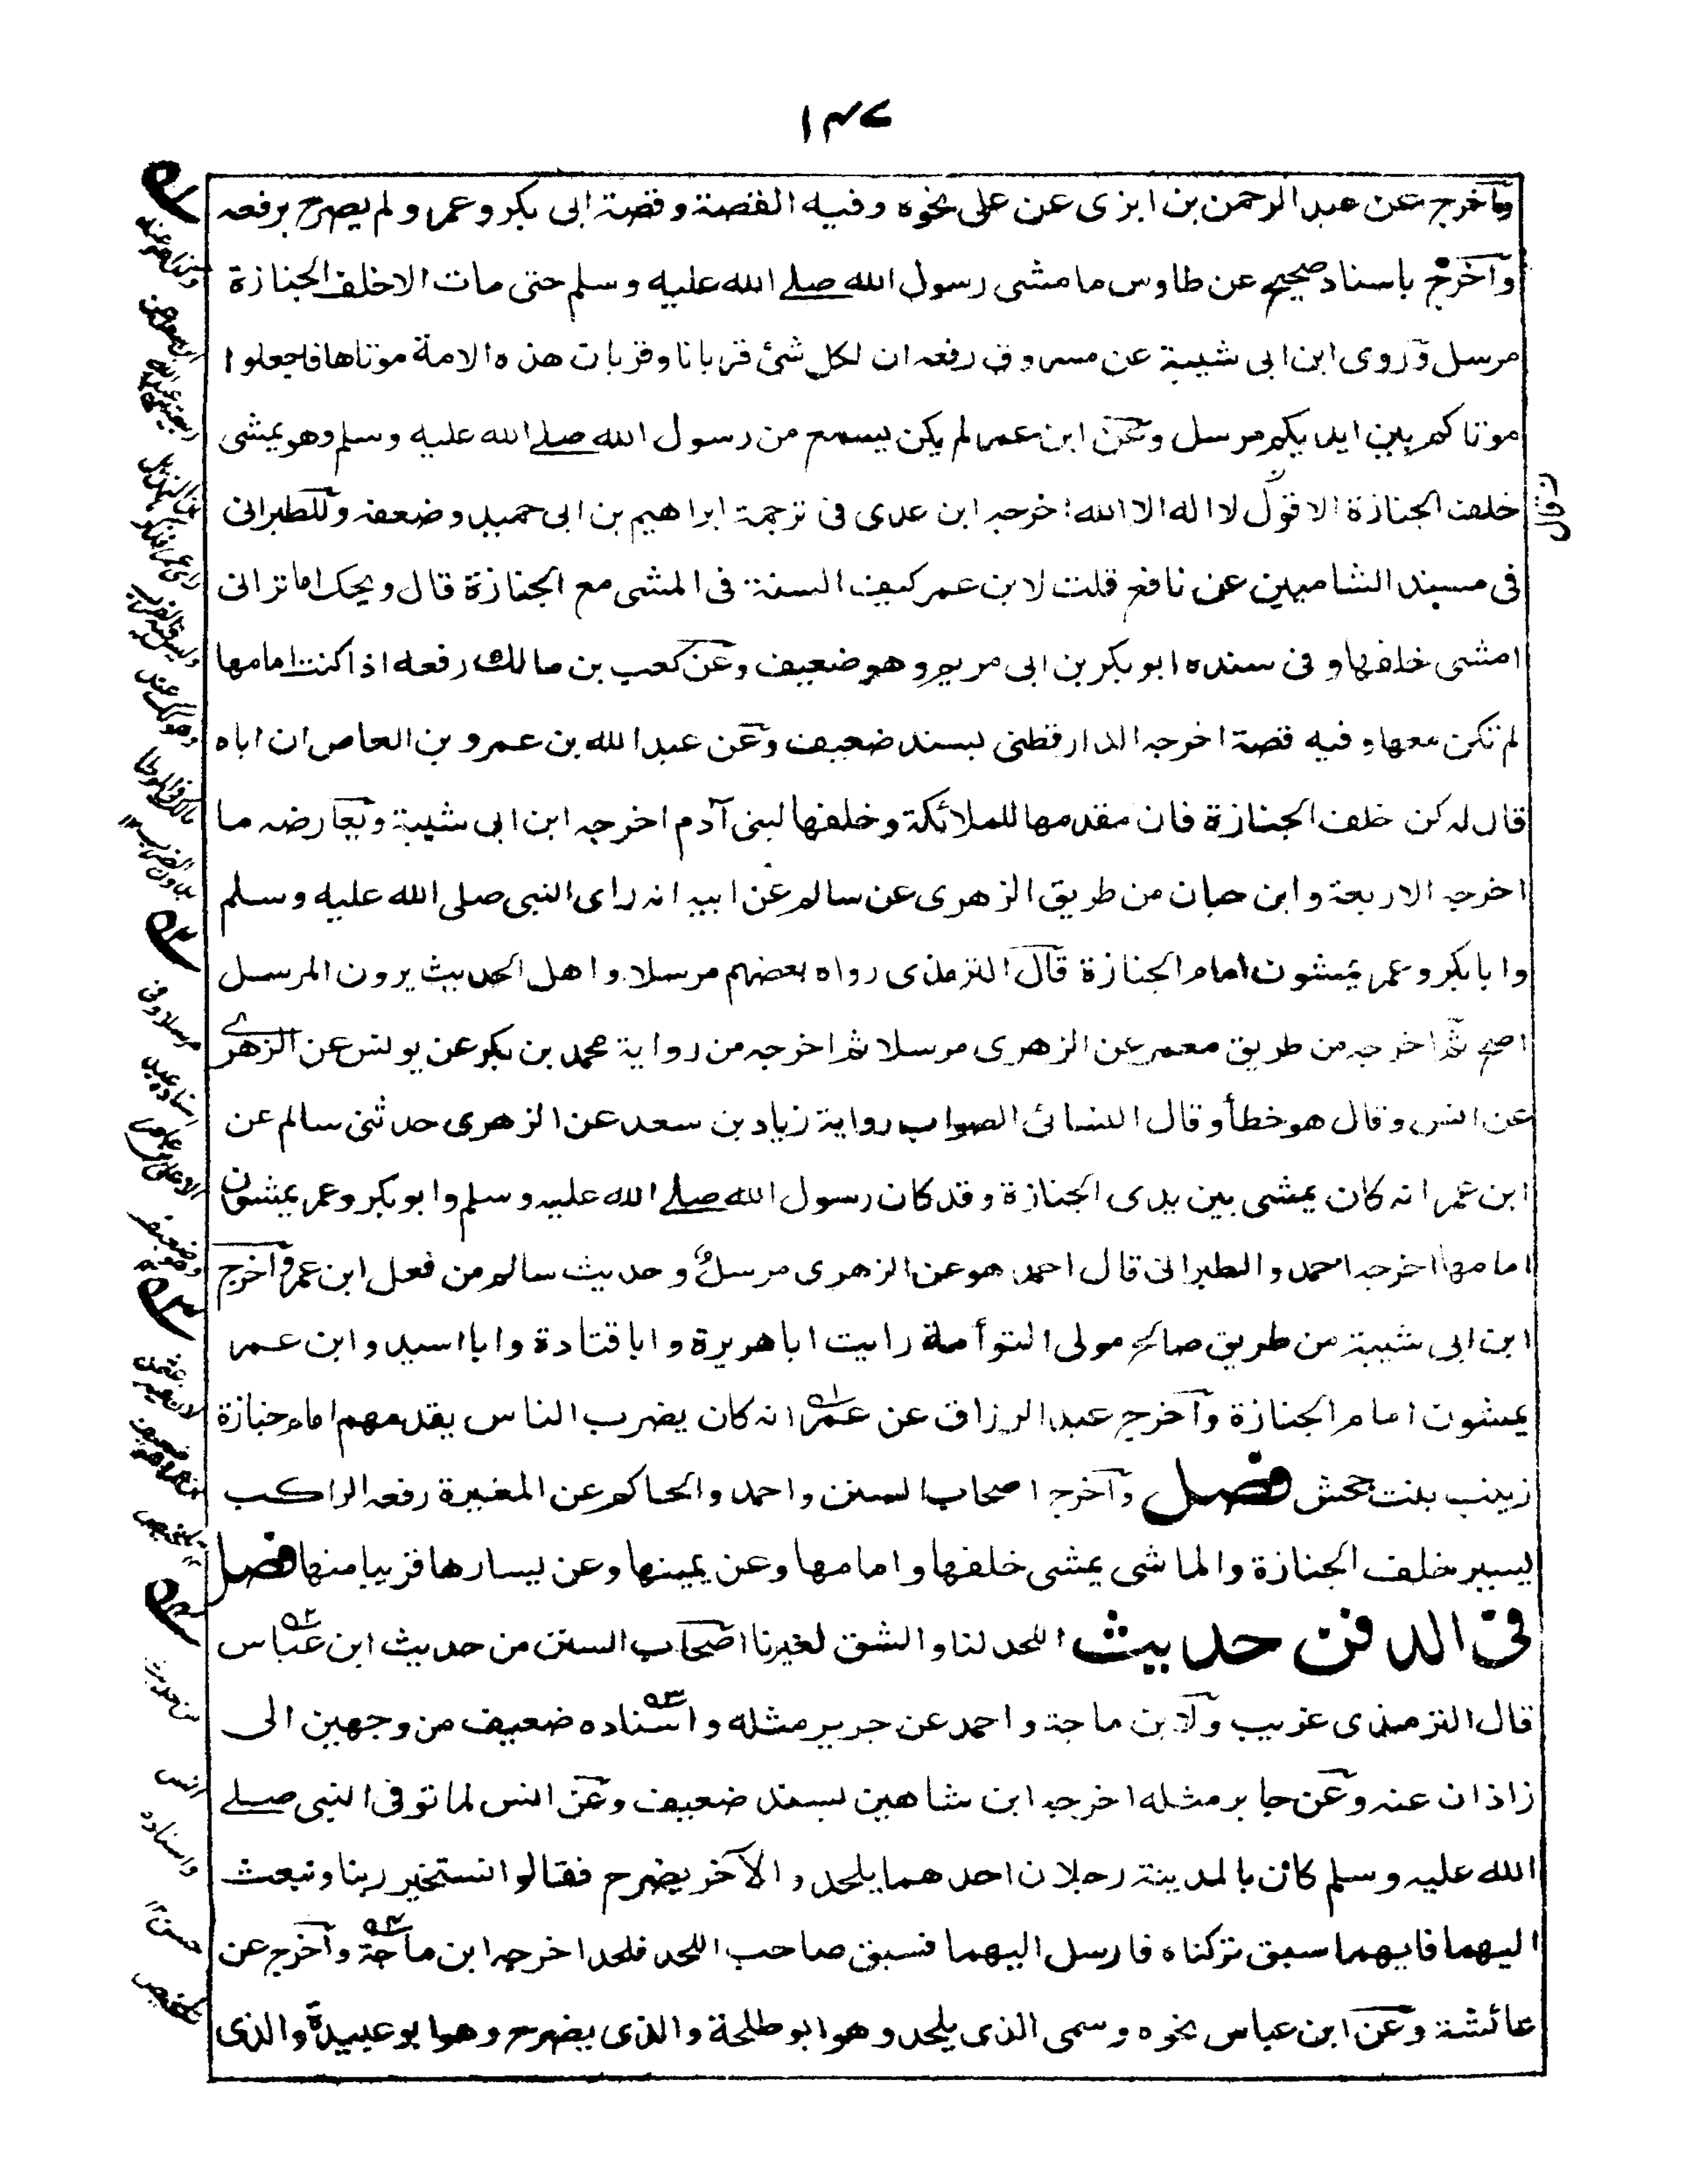 ١٤٧
وآخرج عن عبد الرحمن بن ابزى عن على نحوه وفيه القصة وقصة ابى بكر وعمر ولم يصرح برفعه
وآخرج باسناد صحيح عن طاوس ما مشى رسول الله صلے الله عليه وسلم حتى مات الا خلف الجنازة
مرسل وروى ابن ابى شيبة عن مسروق رفعه ان لكل شئ قربانا وقربات هذه الامة موتاها فاجعلوا
موتاكم بين ايديكم مرسل وعن ابن عمر لم يكن يسمع من رسول الله صلے الله عليه وسلم وهو يمشى
خلف الجنازة الا قول لا اله الا الله اخرجه ابن عدى فى ترجمة ابراهيم بن ابى حميد وضعفه وللطبرانى
فى مسند الشاميين عن نافع قلت لابن عمر كيف السنة فى المشى مع الجنازة قال ويحك اما ترانى
امشى خلفها وفى سنده ابو بكر بن ابى مريم وهو ضعيف وعن كعب بن مالك رفعه اذا كنت امامها
لم تكن معها وفيه قصة اخرجه الدارقطنى بسند ضعيف وعن عبد الله بن عمرو بن العاص ان اباه
قال له كن خلف الجنازة فان مقدمها للملائكة وخلفها لبنى آدم اخرجه ابن ابى شيبة ويعارضه ما
اخرجه الاربعة وابن حبان من طريق الزهرى عن سالم عن ابيه انه راى النبى صلى الله عليه وسلم
وابا بكر وعمر يمشون امام الجنازة قال الترمذى رواه بعضهم مرسلا واهل الحديث يرون المرسل
اصح ثم اخرجه من طريق معمر عن الزهرى مرسلا ثم اخرجه من رواية محمد بن بكر عن يونس عن الزهرے
عن انس وقال هو خطأ وقال النسائى الصواب رواية زياد بن سعد عن الزهرى حدثنى سالم عن
ابن عمر انه كان يمشى بين يدى الجنازة وقد كان رسول الله صلے الله عليه وسلم وابو بكر وعمر يمشون
امامها اخرجه احمد والطبرانى قال احمد هو عن الزهرى مرسل وحديث سالم من فعل ابن عمر وآخرج
ابن ابى شيبة من طريق صالح مولى التوأمة رايت ابا هريرة وابا قتادة وابا اسيد وابن عمر
يمشون امام الجنازة وآخرج عبد الرزاق عن عمر انه كان يضرب الناس يقدمهم امام جنازة
زينب بنت جحش فصل وآخرج اصحاب السنن واحمد والحاكم عن المغيرة رفعه الراكب
يسير خلف الجنازة والماشى يمشى خلفها وامامها وعن يمينها وعن يسارها قريبا منها فصل
فى الدفن حديث اللحد لنا والشق لغيرنا اصحاب السنن من حديث ابن عباس
قال الترمذى غريب ولابن ماجة واحمد عن جرير مثله واسناده ضعيف من وجهين الى
زاذان عنه وعن جابر مثله اخرجه ابن شاهين بسند ضعيف وعن انس لما توفى النبى صلے
الله عليه وسلم كان بالمدينة رجلان احدهما يلحد والآخر يضرح فقالوا نستخير ربنا ونبعث
اليهما فايهما سبق تركناه فارسل اليهما فسبق صاحب اللحد فلحدا اخرجه ابن ماجة وآخرج عن
عائشة وعن ابن عباس نحوه وسمى الذى يلحد وهو ابو طلحة والذى يضرح وهو ابو عبيدة والذى
مرسلا وفى
من حديث
انس
واسناده
حسن
تلخيص